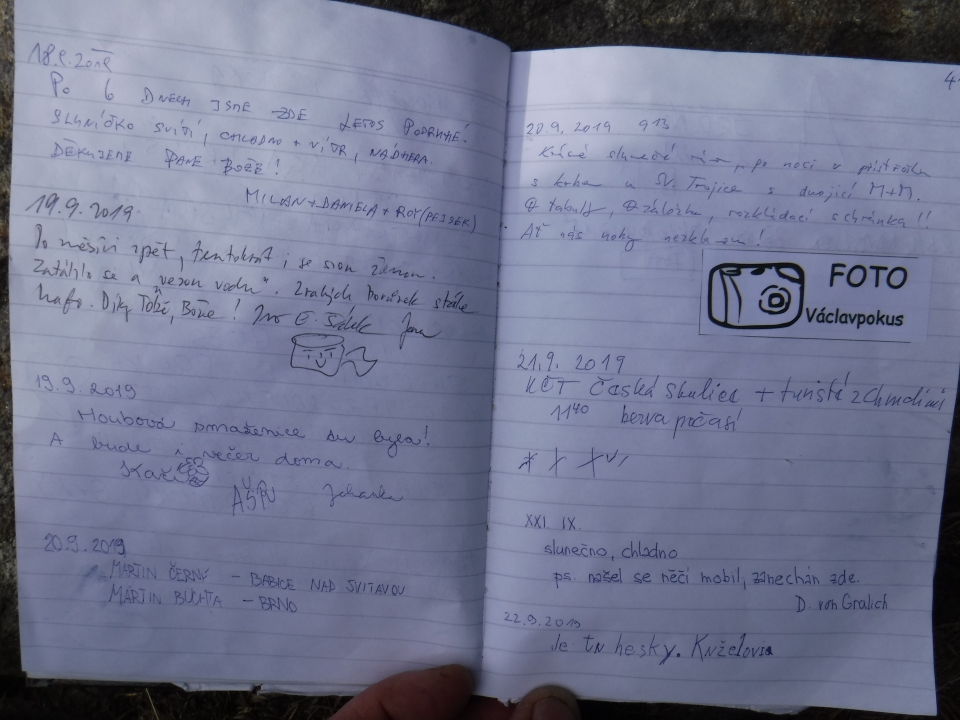 Po 6 DNECH JSME ZDE LETOS PODRUHÉ.
SLUNÍČKO SVÍTÍ, CHLADNO + VÍTR, NÁDHERA.
DĚKUJEME PANE BOŽE!
MILAN + DANIELA + ROY (PEJSEK)
19.9.2019
Po měsíci zpět, tentokrát i se svou ženou.
Zatáhlo se a
Díky Tobě, Bože!
19.9.2019
Houbová smaženice tu byla!
A bude i večer doma.
20.9.2019
MARTIN ČERNÝ – BABICE NAD SVITAVOU
MARTIN BUCHTA – BRNO
4
20.9.2019 9 13
Krásné slunečné ráno, po noci v přístřešku
s krbem u Sv. Trojice s dvojicí M+M.
tabulí, záložka, rozkládací schránka!!
Ať nás nohy nezklamou!
FOTO
Václavpokus
21.9.2019
KČT Česká Skalice + turisté z Chvalkovic
11 40 bezva počasí
XXI. IX.
slunečno, chladno
ps. našel se něčí mobil, zanechán zde.
D. von Gralich
22.9.2019
Je tu hesky.